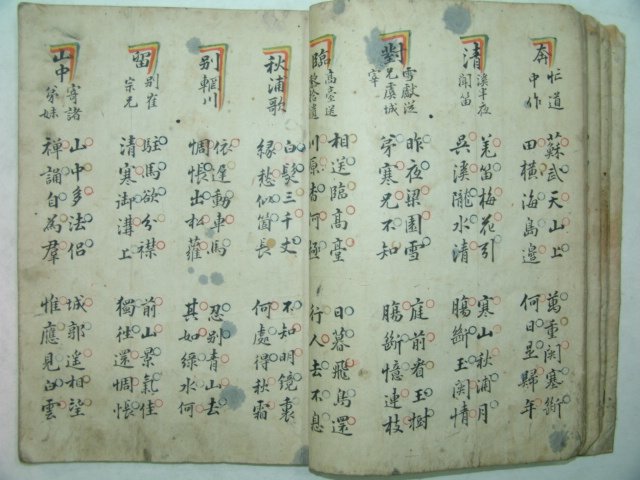 奔忙道中作
蘇武天山上
田橫海島邊
萬重関塞斷
何日是歸年
清溪半夜聞笛
羌笛梅花引
吳溪隴水清
寒山秋浦月
腸斷玉関情
對雪獻從兄虞城宰
昨夜梁園雪
弟寒兄不知
庭前看玉樹
腸斷憶連枝
臨高臺送拾遺
相送臨高臺
川原杳何極
日暮飛鳥還
行人去不息
秋浦歌
白髮三千丈
緣愁似箇長
不知明鏡裏
何處得秋霜
别輞川
依遲動車馬
惆悵出松蘿
忍别青山去
其如綠水何
留别崔宗兄
駐馬欲分襟
清寒御溝上
前山景氣佳
獨往還惆悵
山中寄諸弟妹
山中多法侶
禪誦自為羣
城郭遙相望
惟應見白雲